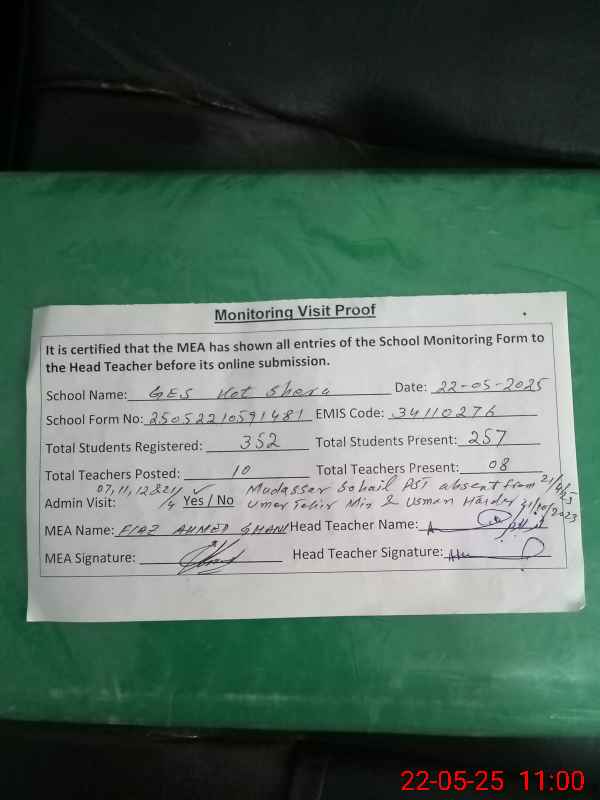 Monitoring Visit Proof
It is certified that the MEA has shown all entries of the School Monitoring Form to
the Head Teacher before its online submission.
School Name: GES Kot Shera Date: 22-05-2025
School Form No: 25052210591481 EMIS Code: 34110276
Total Students Registered: 352 Total Students Present: 257
Total Teachers Posted: 10 Total Teachers Present: 08
07, 11, 12 & 21/4 Mudassar Sohail PST absent from 21/4/25
Admin Visit: Yes / No Umer Tahir Mir & Usman Haider 31/10/2023
MEA Name: FIAZ AHMED GHANI Head Teacher Name:
MEA Signature: Head Teacher Signature:
22-05-25 11:00